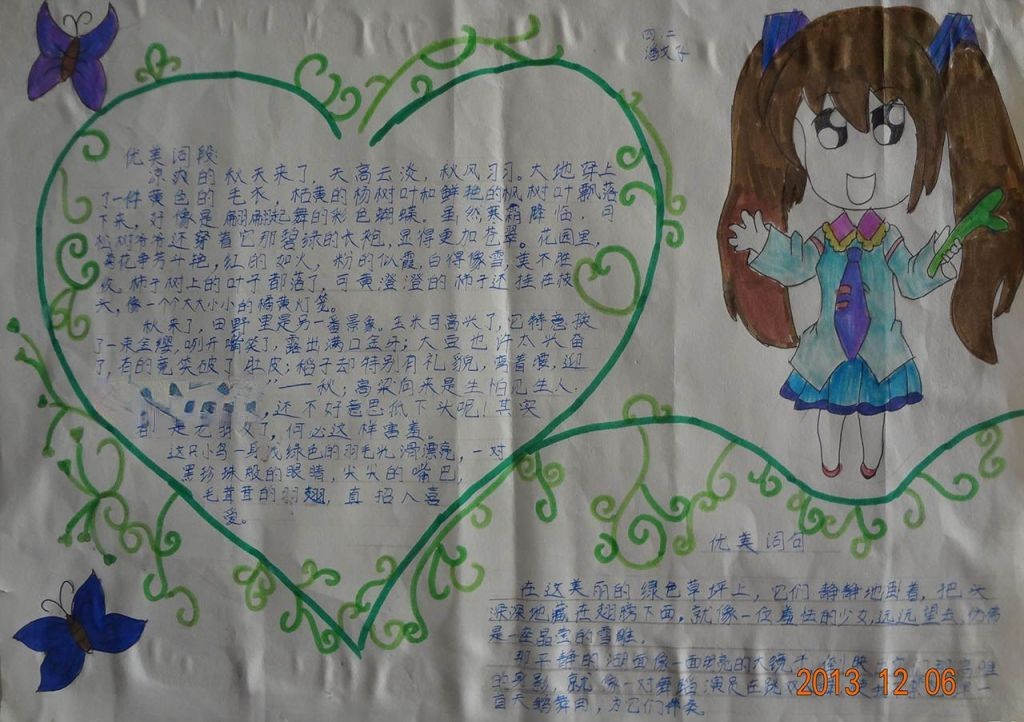 四.二
优美词段
凉爽的秋天来了,天高云淡,秋风习习。大地穿上
了一件黄色的毛衣,枯黄的杨树叶和鲜艳的枫树叶飘落
下来,好像是翩翩起舞的彩色蝴蝶。虽然寒霜降临,可
松树爷爷还穿着它那碧绿的长袍,显得更加苍翠。花园里,
菊花争芳斗艳,红的如火,粉的似霞,白得像雪,美不胜
收。柿子树上的叶子都落了,可黄澄澄的柿子还挂在枝
头,像一个个大大小小的橘黄灯笼。
秋来了,田野里是另一番景象。玉米可高兴了,它特意披
了一束金缨,咧开嘴笑了,露出满口金牙;大豆也许太兴奋
了,有的竟笑破了肚皮;稻子却特别有礼貌,弯着腰,迎
"——秋;高粱向来是生怕见生人.
,还不好意思低下头呢!其实
是老朋友了,何必这样害羞。
这只小鸟一身浅绿色的羽毛光滑漂亮,一对
黑珍珠般的眼睛,尖尖的嘴巴,
毛茸茸的羽翅,真招人喜
爱。
优美词句
在这美丽的绿色草坪上,它们静静地卧着,把头
深深地藏在翅膀下面。就像一位羞怯的少女,远远望去,仿佛
是一座晶莹的雪雕。
那平静的湖面像一面明亮的大镜子,倒映
的身影,就像一对舞蹈演员在跳
首天鹅舞曲,为它们伴奏
2013 12 06